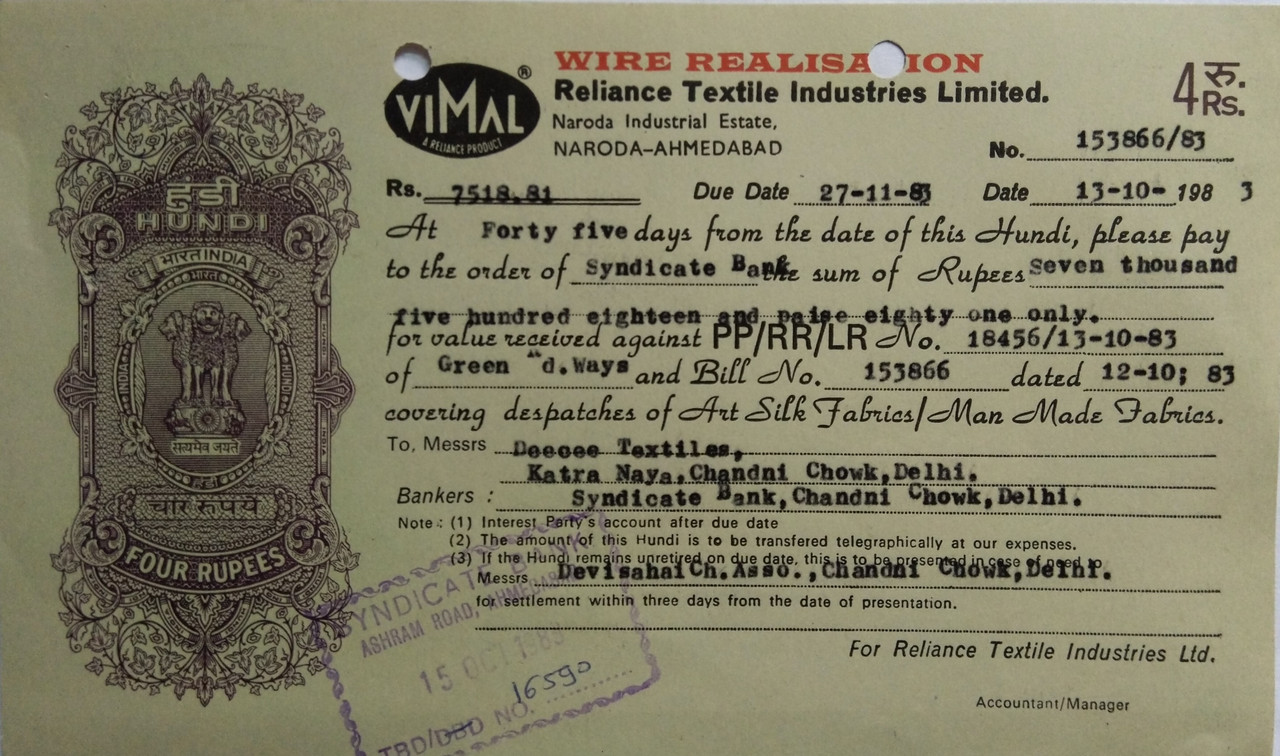 हुंडी
HUNDI
भारत INDIA
भारत
INDIA
HUNDI
सत्यमेव जयते
हुंडी
चार रुपये
FOUR RUPEES
VIMAL ®
A RELIANCE PRODUCT
WIRE REALISA ION
Reliance Textile Industries Limited.
4 रु. Rs.
Naroda Industrial Estate,
NARODA-AHMEDABAD
No. 153866/83
Rs. 7518.81 Due Date 27-11-83 Date 13-10- 198 3
At Forty five days from the date of this Hundi, please pay
to the order of Syndicate Bank the sum of Rupees Seven thousand
five hundred eighteen and paise eighty one only.
for value received against PP/RR/LR No. 18456/13-10-83
of Green d.Ways and Bill No. 153866 dated 12-10; 83
covering despatches of Art Silk Fabrics/Man Made Fabrics.
To, Messrs Deecee Textiles,
Katra Naya,Chandni Chowk,Delhi.
Bankers : Syndicate Bank,Chandni Chowk,Delhi.
Note : (1) Interest Party's account after due date
(2) The amount of this Hundi is to be transfered telegraphically at our expenses.
(3) If the Hundi remains unretired on due date, this is to be presented in case of need to
Messrs Devisahai Ch. Asso.,Chandni Chowk,Delhi.
for settlement within three days from the date of presentation.
For Reliance Textile Industries Ltd.
Accountant/Manager
SYNDICATE BANK
ASHRAM ROAD, AHMEDABAD
15 OCT 1983
TBD/DBD NO. 16590